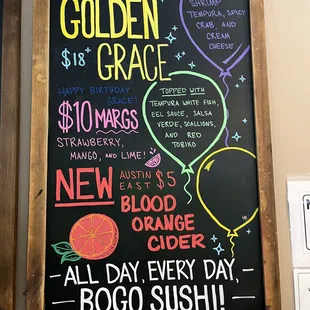 GOLDEN
$18 GRACE
SHRIMP
TEMPURA, SPICY
CRAB, AND
CREAM
CHEESE
TOPPED WITH
TEMPURA WHITE FISH,
EEL SAUCE, SALSA
VERDE, SCALLIONS,
AND RED
TOBIKO
HAPPY BIRTHDAY
GRACE!
$10 MARGS
STRAWBERRY,
MANGO, AND LIME!
NEW AUSTIN
EAST $5
BLOOD
ORANGE
CIDER
-ALL DAY, EVERY DAY,-
-BOGO SUSHI!-